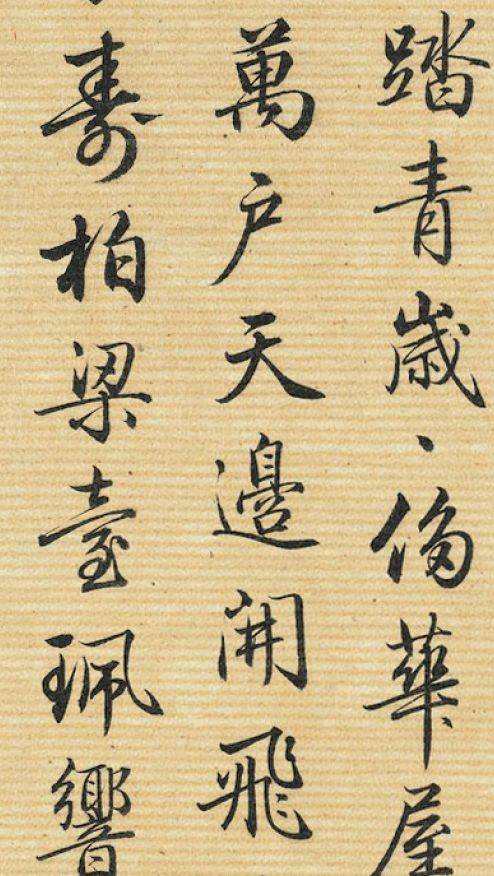 踏青歲、華屋
萬户天邊開飛
壽柏梁臺珮響